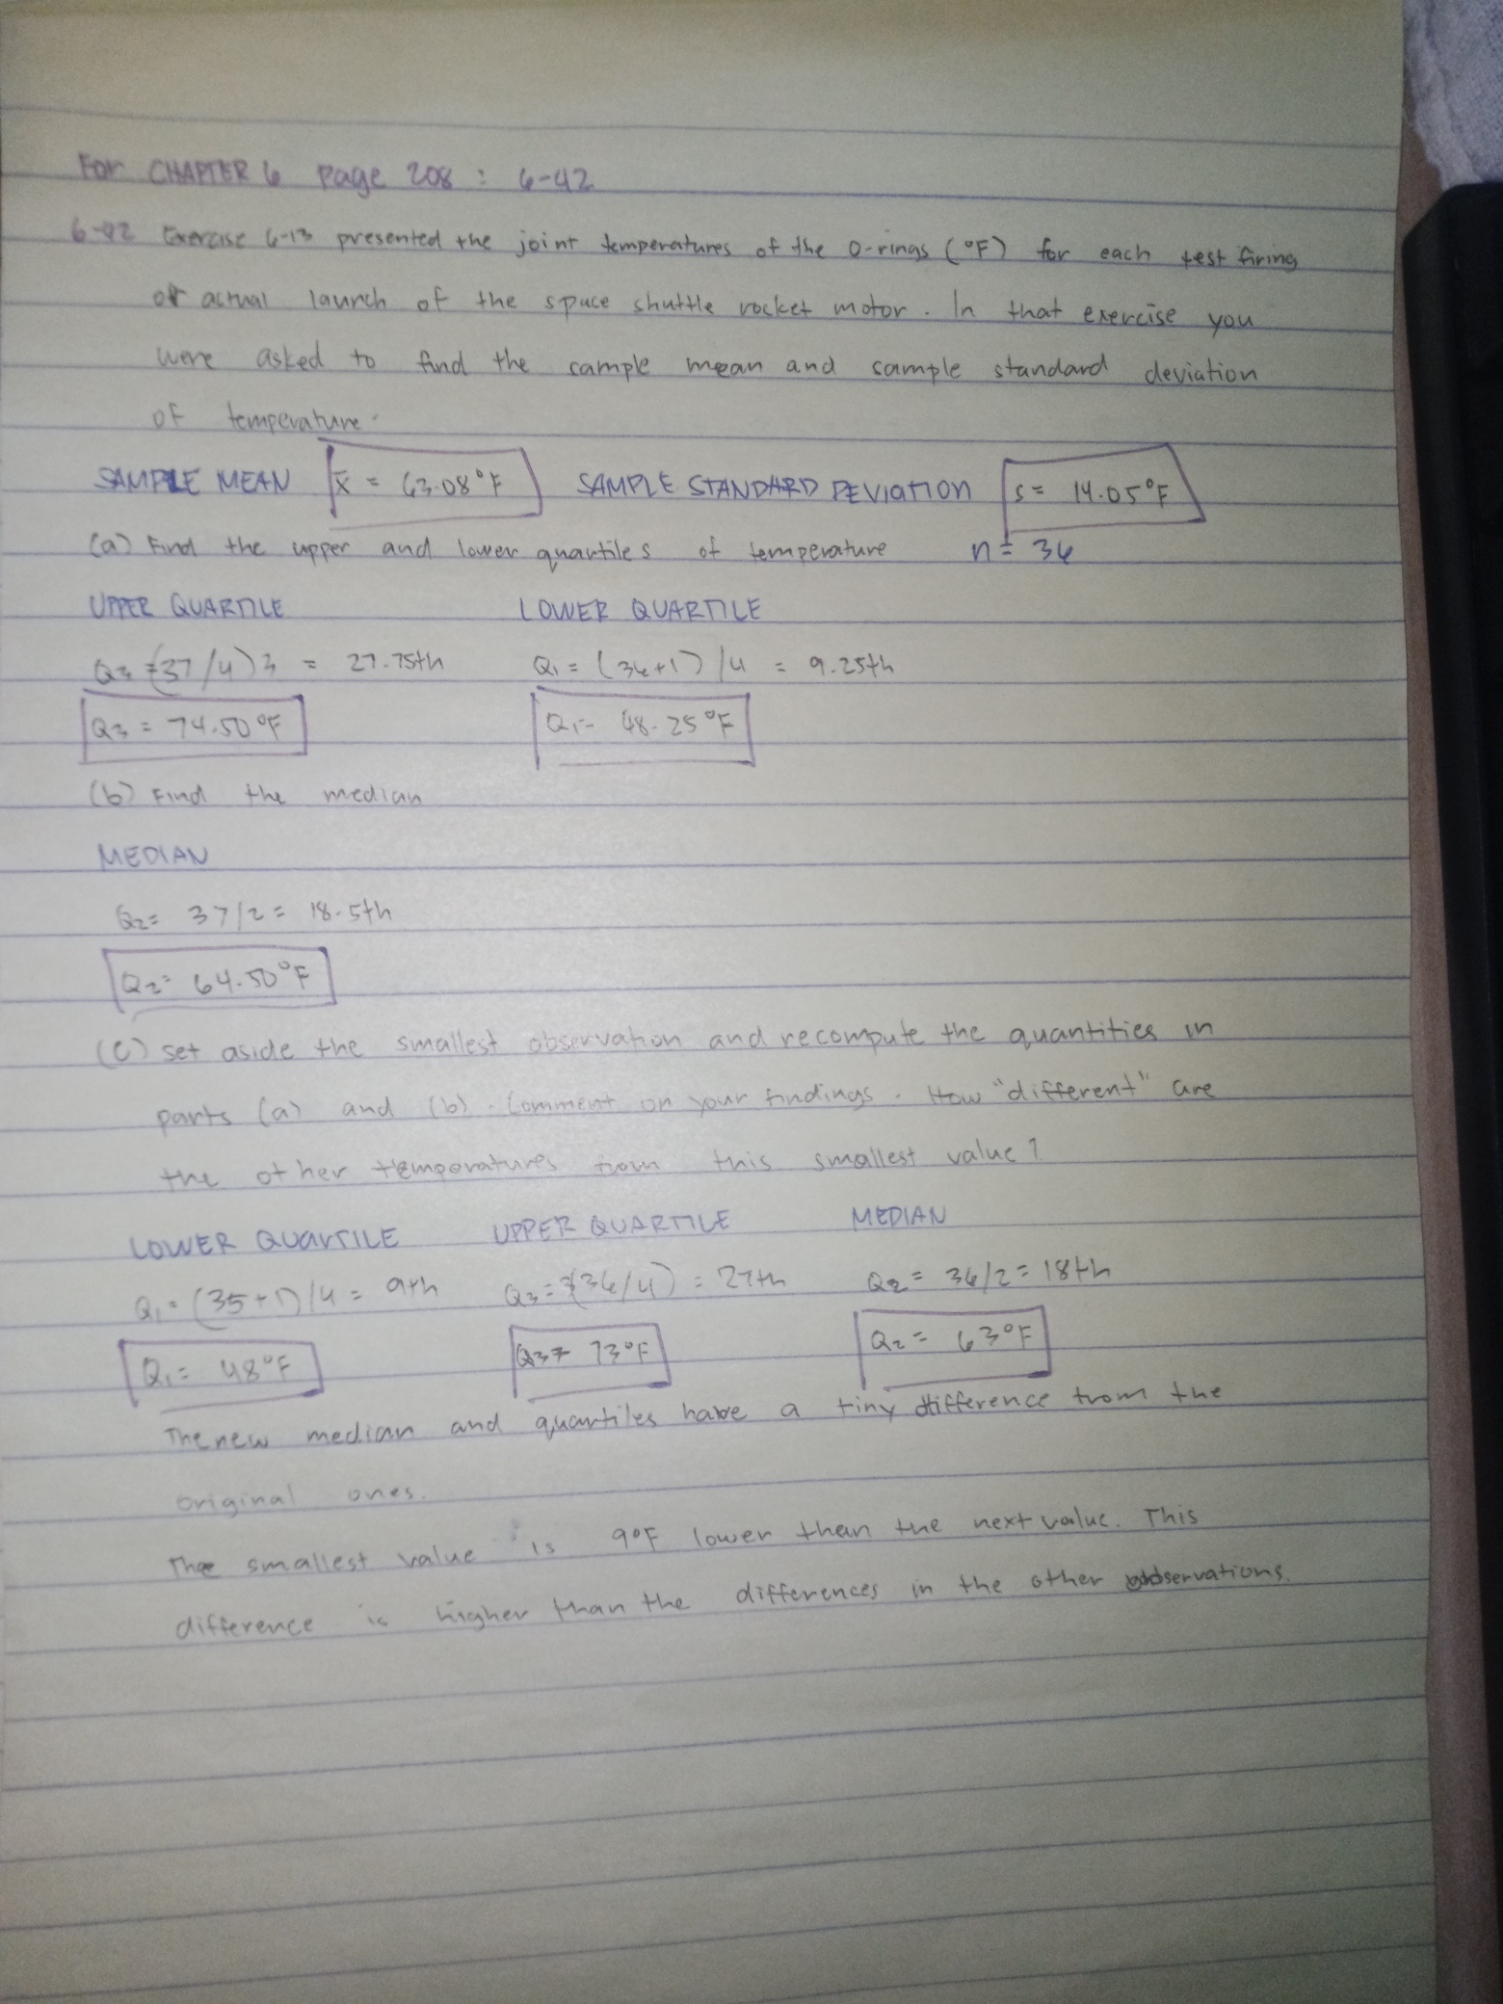 For CHAPTER 6 page 208 : 6-42
6-42 Exercise 6-13 presented the joint temperatures of the O-rings (°F) for each test firing
or actual launch of the space shuttle rocket motor. In that exercise you
were asked to find the sample mean and sample standard deviation
of temperature.
SAMPLE MEAN x̄ = 63.08°F SAMPLE STANDARD DEVIATION s = 14.05°F
(a) Find the upper and lower quartiles of temperature n = 36
UPPER QUARTILE LOWER QUARTILE
Q3 = (37/4)3 = 27.75th Q1 = (36+1)/4 = 9.25th
Q3 = 74.50°F Q1 = 48.25°F
(b) Find the median
MEDIAN
Q2 = 37/2 = 18.5th
Q2 = 64.50°F
(c) set aside the smallest observation and recompute the quantities in
parts (a) and (b). Comment on your findings. How "different" are
the other temperatures from this smallest value?
LOWER QUARTILE UPPER QUARTILE MEDIAN
Q1 = (35+1)/4 = 9th Q3 = 3(36/4) = 27th Q2 = 36/2 = 18th
Q1 = 48°F Q3 = 73°F Q2 = 63°F
The new median and quartiles have a tiny difference from the
original ones.
The smallest value is 9°F lower than the next value. This
difference is higher than the differences in the other observations.